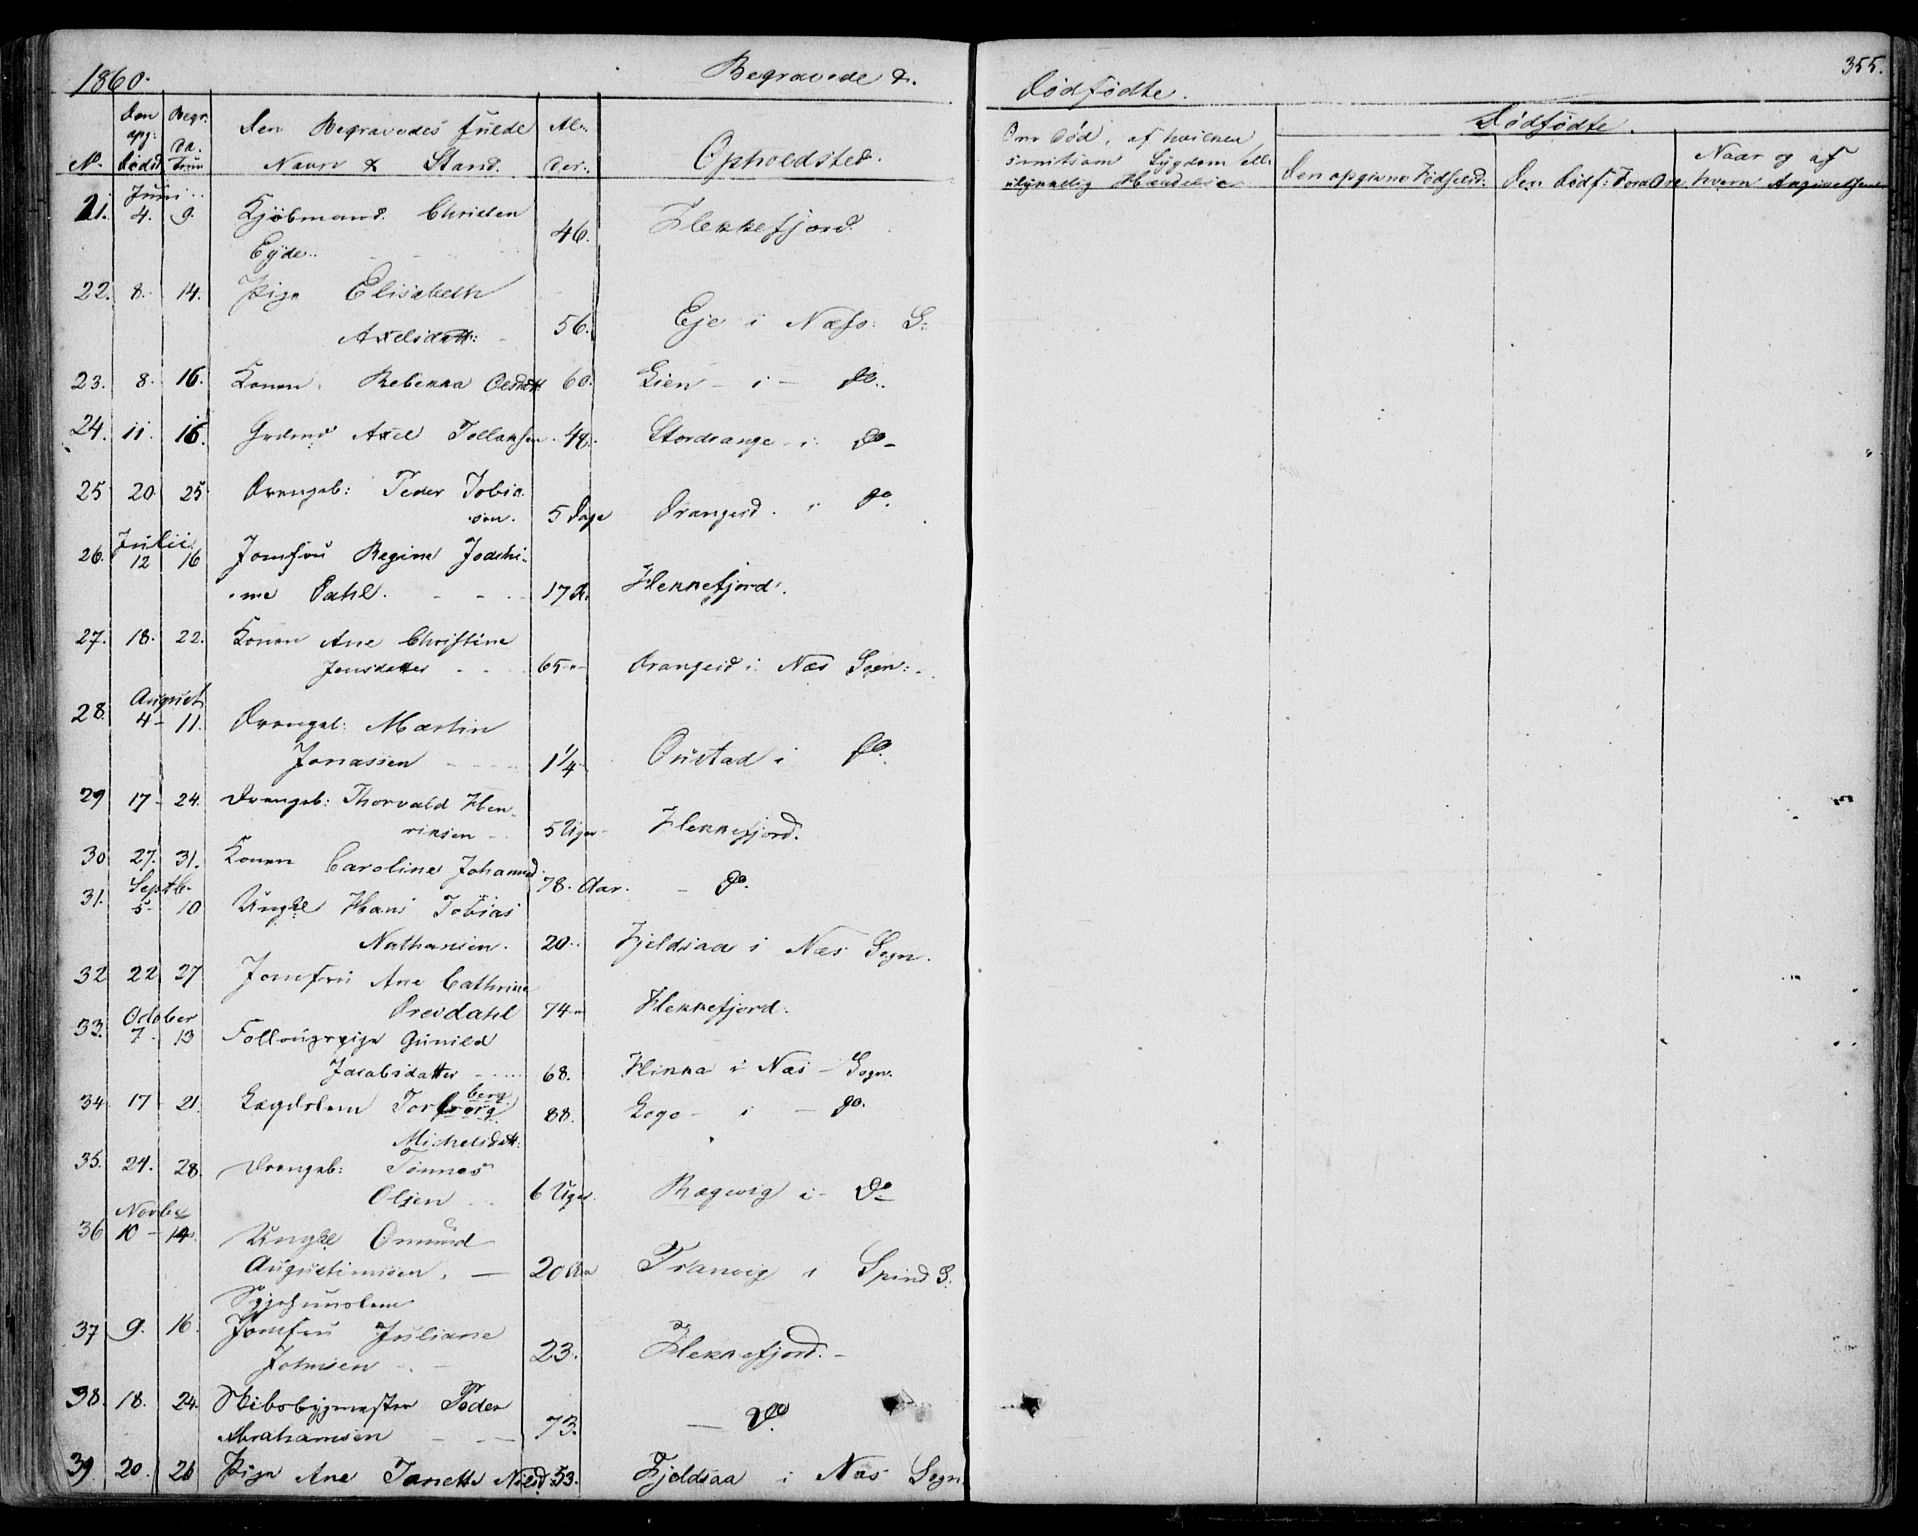 1860. Begravede &.
No. Den opg: Døds d. Begr: Da- tum Den Begravedes fulde Navn & Stand. Al- der. Opholdsted.
Juni
21. 4. 9. Kjöbmand Christen
Eyde 46. Flekkefjord.
22. 8. 14. Pige Elisabeth
Axelsdatt: 56. Eje i Næss: S:
23. 8. 16. Konen Rebekka Olsdatt 60. Lien - i - do.
24. 11. 16. Grdmd Axel Tollaksen 48. Stordrange i do
25 20 25 Drengeb: Peder Tobia
sen. 5 Dage Drangeid i do.
Julii
26. 12 16 Jomfru Regine Joachi-
me Dahl. 17 A. Flekkefjord.
27. 18. 22. Konen Ane Christine
Jensdatter 65 Drangeid i Næs Sogn:
August
28. 4 - 11. Drengeb: Martin
Jonassen 1 1/4 Oustad i do.
29 17 - 24. Drengeb: Thorvald Hen-
riksen 5 Uger Flekkefjord.
30 27. 31. Konen Caroline Johannsd 78. Aar. - do.
Septb.
31. 5 10 Ungkl Hans Tobias
Nathansen. 20. Fjeldsaa i Næs Sogn.
32. 22. 27 Jomfru Ane Cathrine
Drevdahl 74 Flekkefjord.
October
33. 7 13 Follougspige Gunild
Jacobsdatter 68. Hinna i Næs - Sogn.
34. 17 - 21. Lægdslem Torborg berg
Michelsdatt: 88. Loge - i - do.
35. 24. 28. Drengeb: Tönnes
Olsen 6 Uger Rægevig i - do
Novbr
36 10 - 14. Ungkl Omund
Augustinusen. 20 Aar Tranvig i Spind S:
Sygehuuslem
37 9. 16. Jomfru Juliane
Johnsen 23. Flekkefjord.
38. 18. 24. Skibsbygmester Peder
Abrahamsen 73. - do.
39 20. 26 Pige Ane Tanette Nilsd. 53. Fjeldsaa i Næs Sogn.
Dödfödte. 355.
Om död, af hvilken
smitsom Sygdom ell:
ulykkelig Hændelse
Dødfødte.
Den opgivne Födselsd: Den dödf: Forældre Naar og af hvem Angivelsen